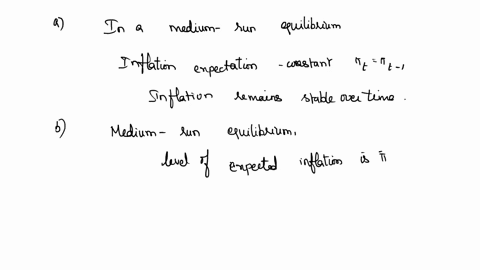 a) In a medium-run equilibrium
Inflation expectation - constant π_t = π_t-1,
Inflation remains stable over time.
b) Medium-run equilibrium,
level of expected inflation is π̄